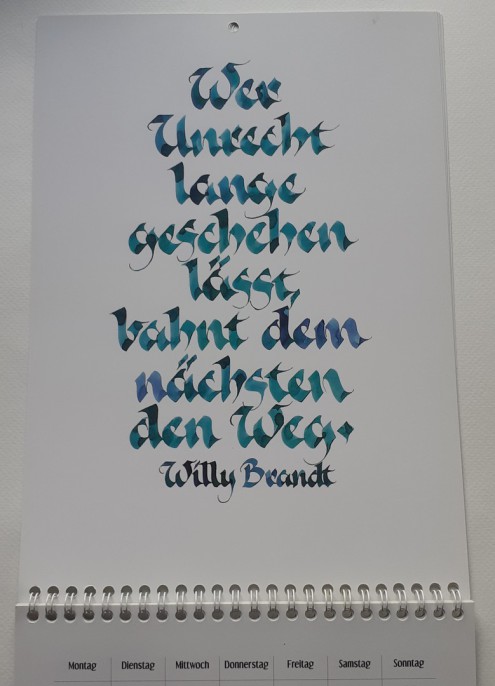 Wer
Unrecht
lange
geschehen
lässt,
bahnt dem
nächsten
den Weg.
Willy Brandt
Montag Dienstag Mittwoch Donnerstag Freitag Samstag Sonntag